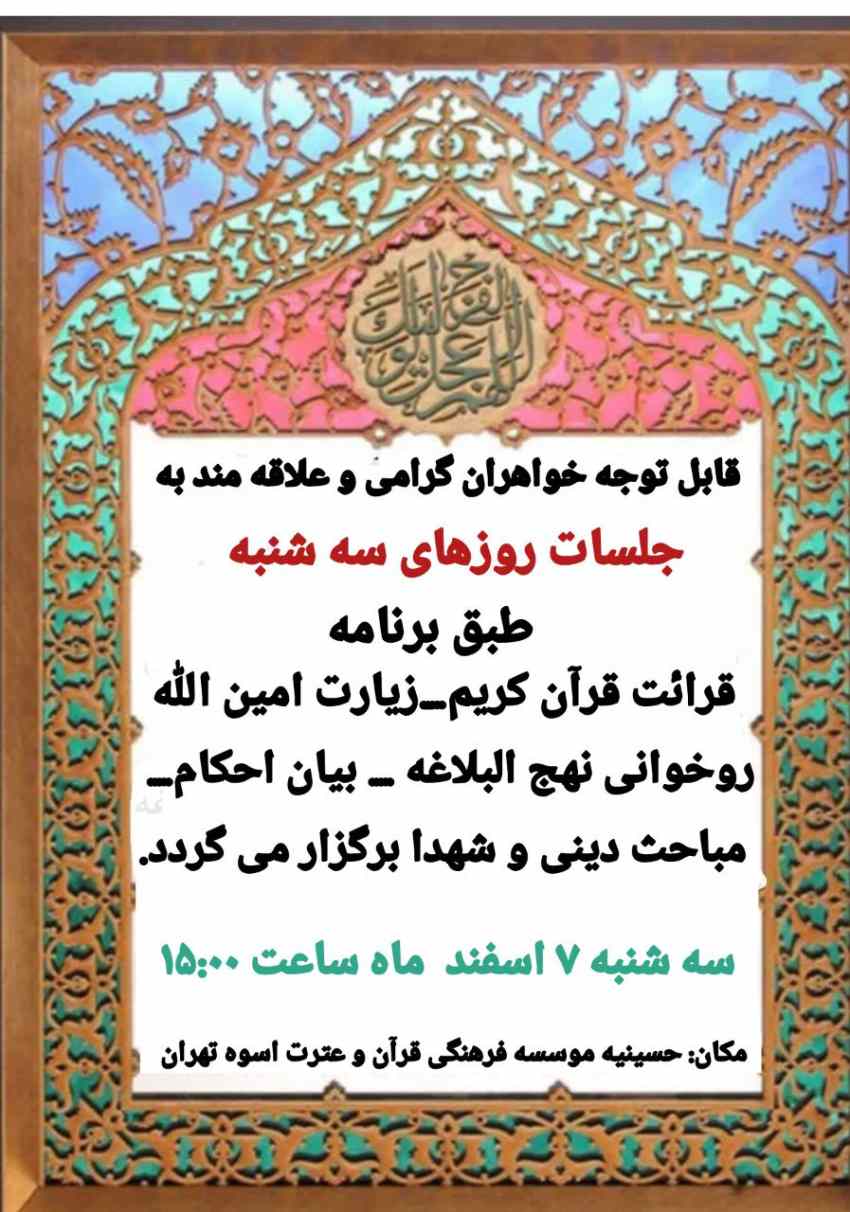 اللهم عجل لولیک الفرج
قابل توجه خواهران گرامی و علاقه مند به
جلسات روزهای سه شنبه
طبق برنامه
قرائت قرآن کریم_زیارت امین الله
روخوانی نهج البلاغه _ بیان احکام_
مباحث دینی و شهدا برگزار می گردد.
سه شنبه ۷ اسفند ماه ساعت ۱۵:۰۰
مکان: حسینیه موسسه فرهنگی قرآن و عترت اسوه تهران